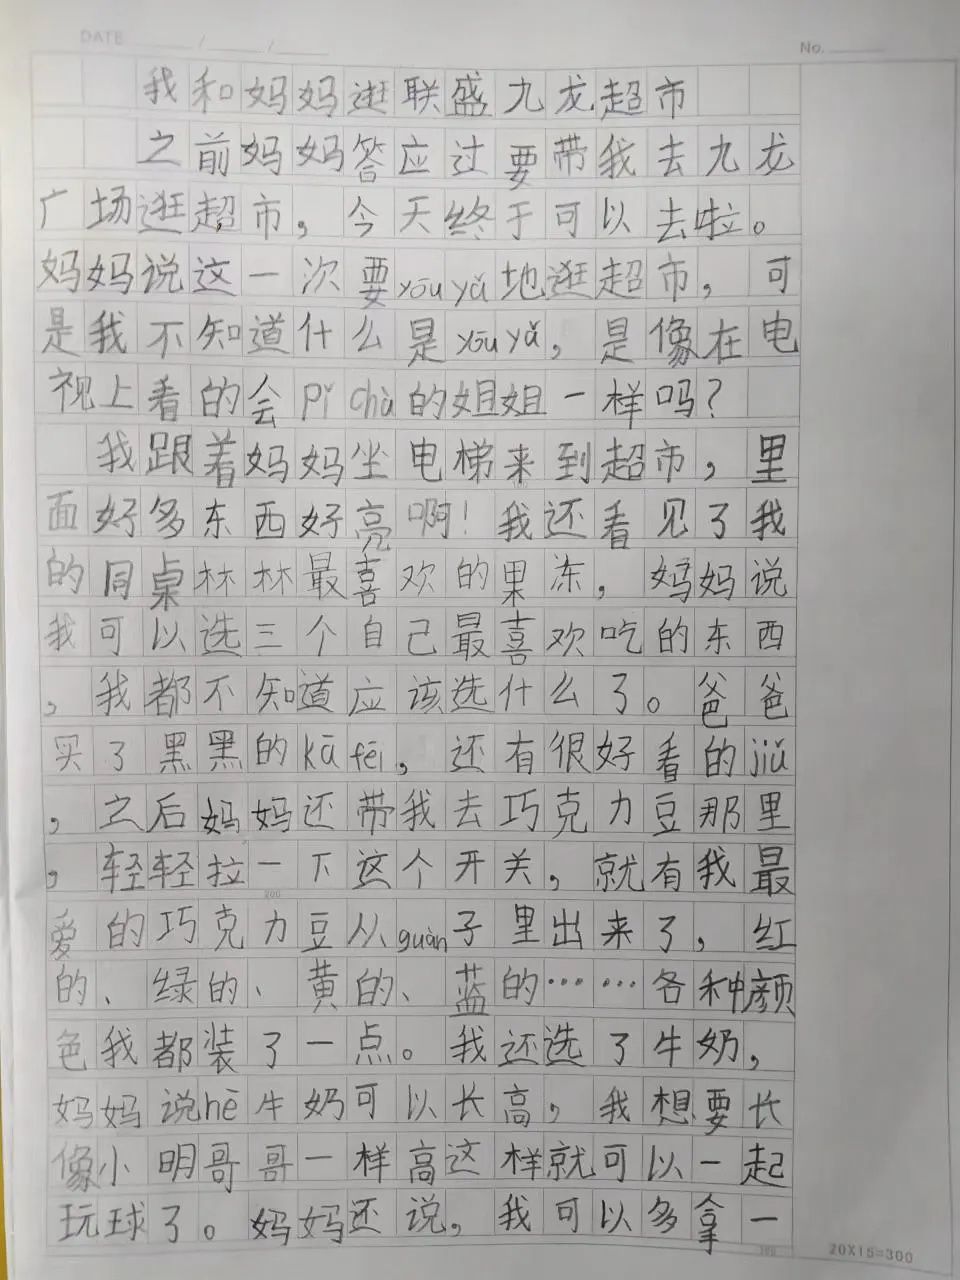 DATE / / No.
我和妈妈逛联盛九龙超市
之前妈妈答应过要带我去九龙
广场逛超市，今天终于可以去啦。
妈妈说这一次要yōu yǎ地逛超市，可
是我不知道什么是yōu yǎ，是像在电
视上看的会pí chù的姐姐一样吗？
我跟着妈妈坐电梯来到超市，里
面好多东西好亮啊！我还看见了我
的同桌林林最喜欢的果冻，妈妈说
我可以选三个自己最喜欢吃的东西
，我都不知道应该选什么了。爸爸
买了黑黑的kā fēi，还有很好看的jiǔ
，之后妈妈还带我去巧克力豆那里
，轻轻拉一下这个开关，就有我最
200
爱的巧克力豆从guàn子里出来了，红
的、绿的、黄的、蓝的……各种颜
色我都装了一点。我还选了牛奶，
妈妈说hē牛奶可以长高，我想要长
像小明哥哥一样高这样就可以一起
玩球了。妈妈还说，我可以多拿一
300
20X15=300